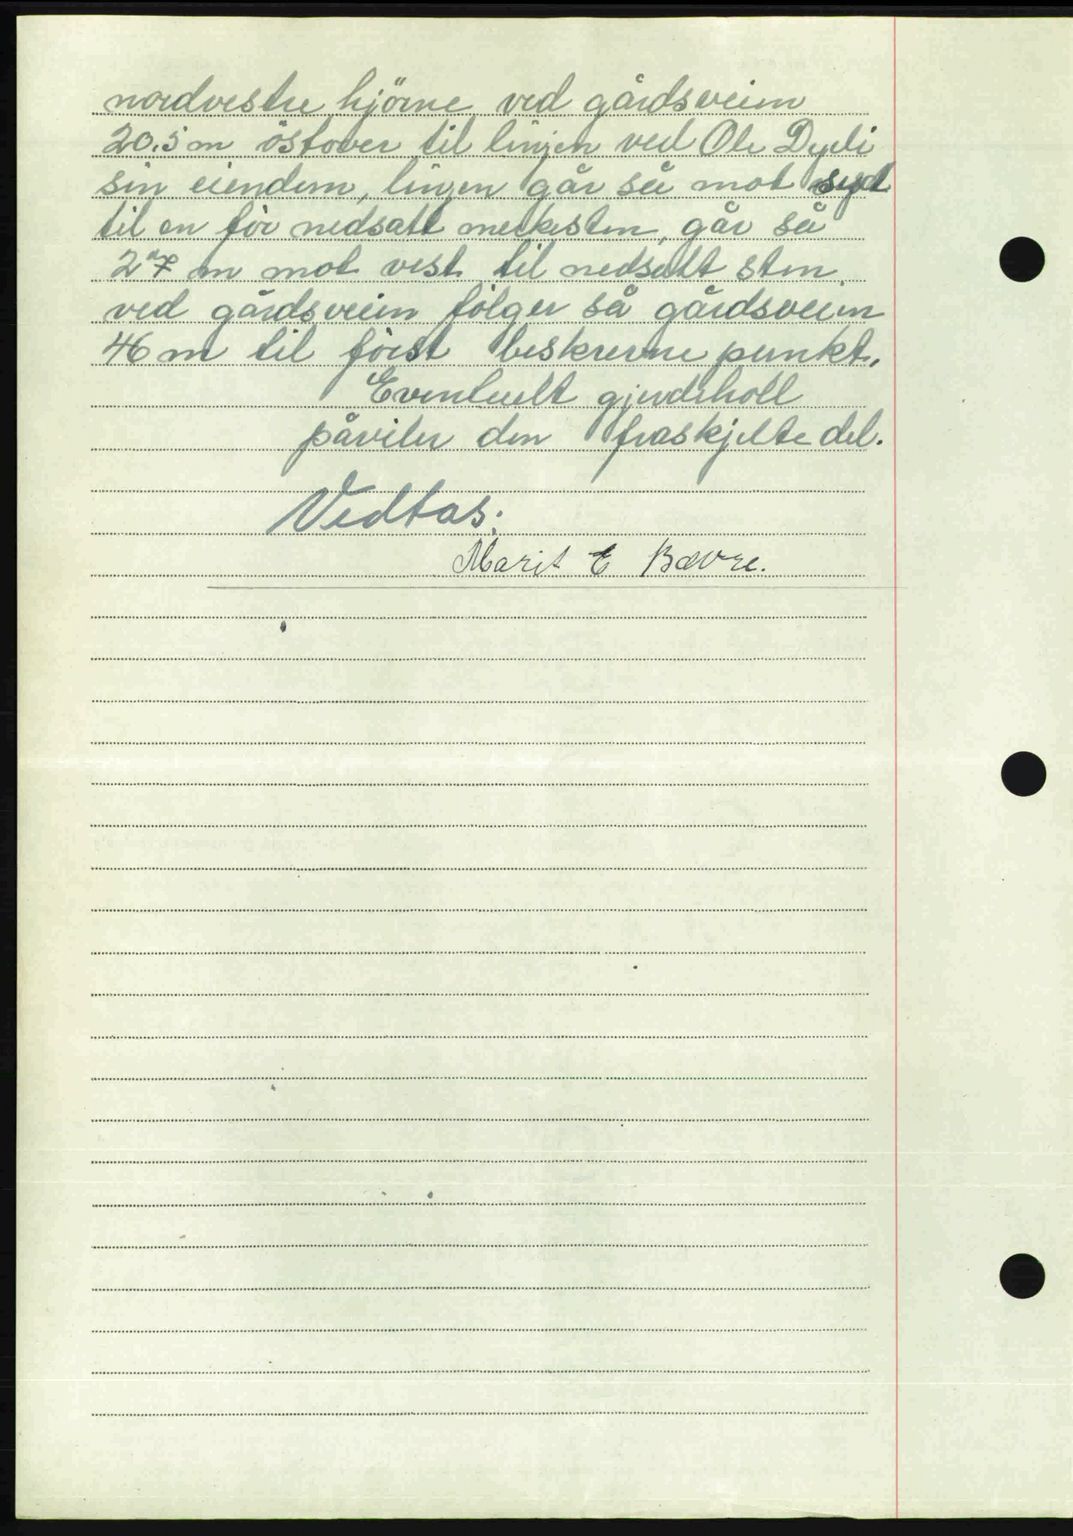 nordvestre hjörne ved gårdsveien
20.5 m östover til linjen ved Ole Dyrli
sin eiendom, linjen går så mot syd
til en för nedsatt merkesten, går så
27 m mot vest til nedsatt sten
ved gårdsveien fölger så gårdsveien
46 m til först beskrevne punkt.
Eventuelt gjerdeholl
påviler den fraskjelte del.
Vedtas:
Marit E Bævre.